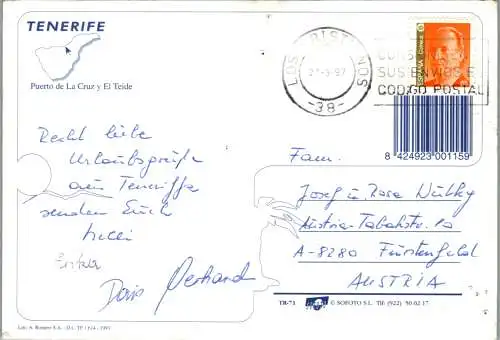 TENERIFE
Puerto de La Cruz y El Teide
LOS CRISTIANOS
-38-
CONSIGNE EN
SUS ENVIOS EL
CODIGO POSTAL
ESPAÑA
8 424923 001159
Recht liebe
Urlaubsgrüße
aus Teneriffa
senden Euch
Doris Gerhard
Fam.
Josef u. Rosa
Austria-Tabakstr. 10
A-8280 Fürstenfeld
AUSTRIA
TR-73 © SOROTO S.L. Tlf: (922) 50 02 17